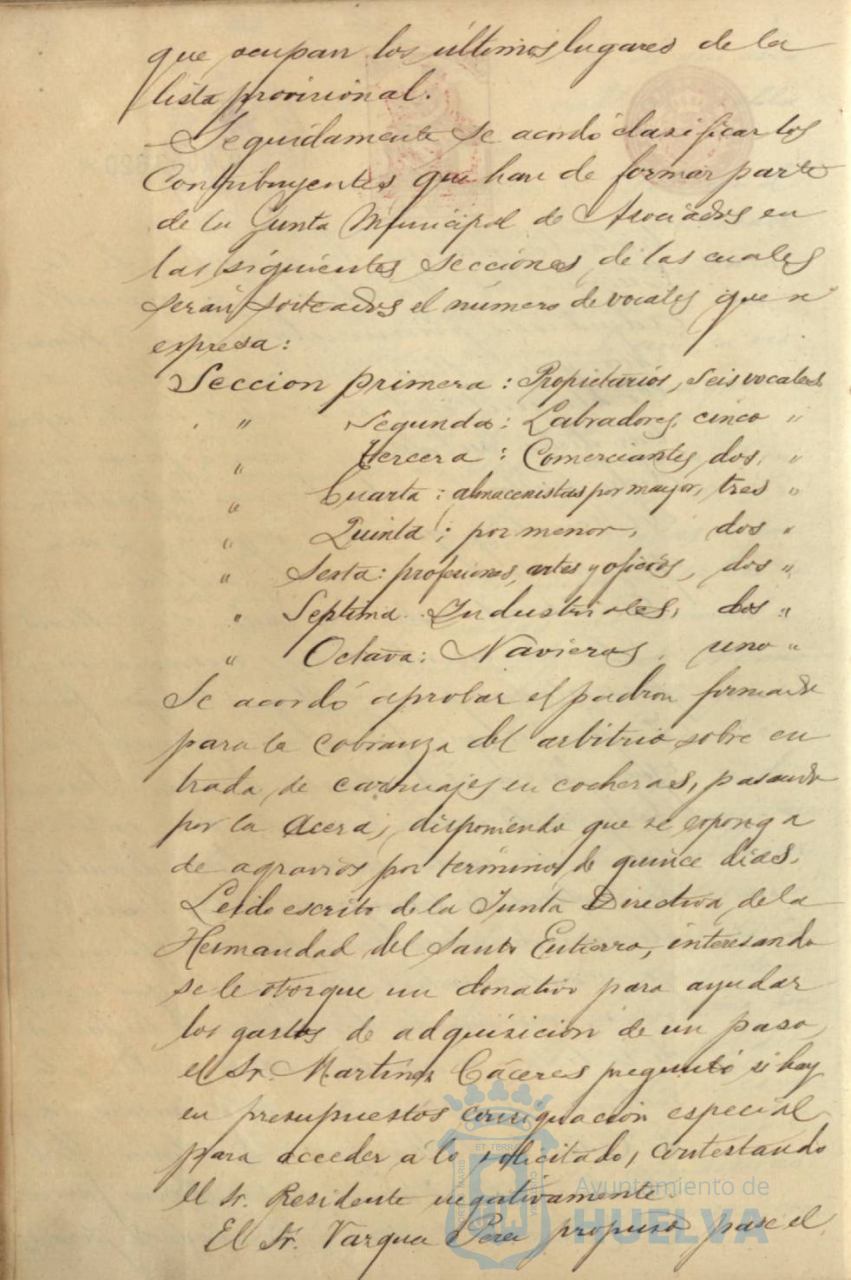 que ocupan los últimos lugares de la
lista provisional.
Seguidamente se acordó clasificar los
Contribuyentes que han de formar parte
de la Junta Municipal de Asociados en
las siguientes secciones, de las cuales
serán sorteados el número de vocales que se
expresa:
Seccion primera: Propietarios, seis vocales
" Segunda: Labradores, cinco "
" tercera: Comerciantes, dos, "
" Cuarta: almacenistas por mayor, tres "
" Quinta; por menor, dos "
" Sexta: profesiones, artes y oficios, dos "
" Septima. Industriales, dos "
" Octava: Navieros, uno "
Se acordó aprobar el padron formado
para la cobranza del arbitrio sobre en
trada de carruajes en cocheras, pasando
por la acera, disponiendo que se esponga
de agravios por término de quince dias.
Leido escrito de la Junta Directiva de la
Hermandad del Santo Entierro, interesando
se le otorgue un donativo para ayudar
los gastos de adquisicion de un paso,
el Sr. Martinez Cáceres preguntó si hay
en presupuestos consignación especial
para acceder á lo solicitado, contestando
el Sr. Presidente negativamente.
El Sr. Vargas Perez propuso pase el
Ayuntamiento de
HUELVA